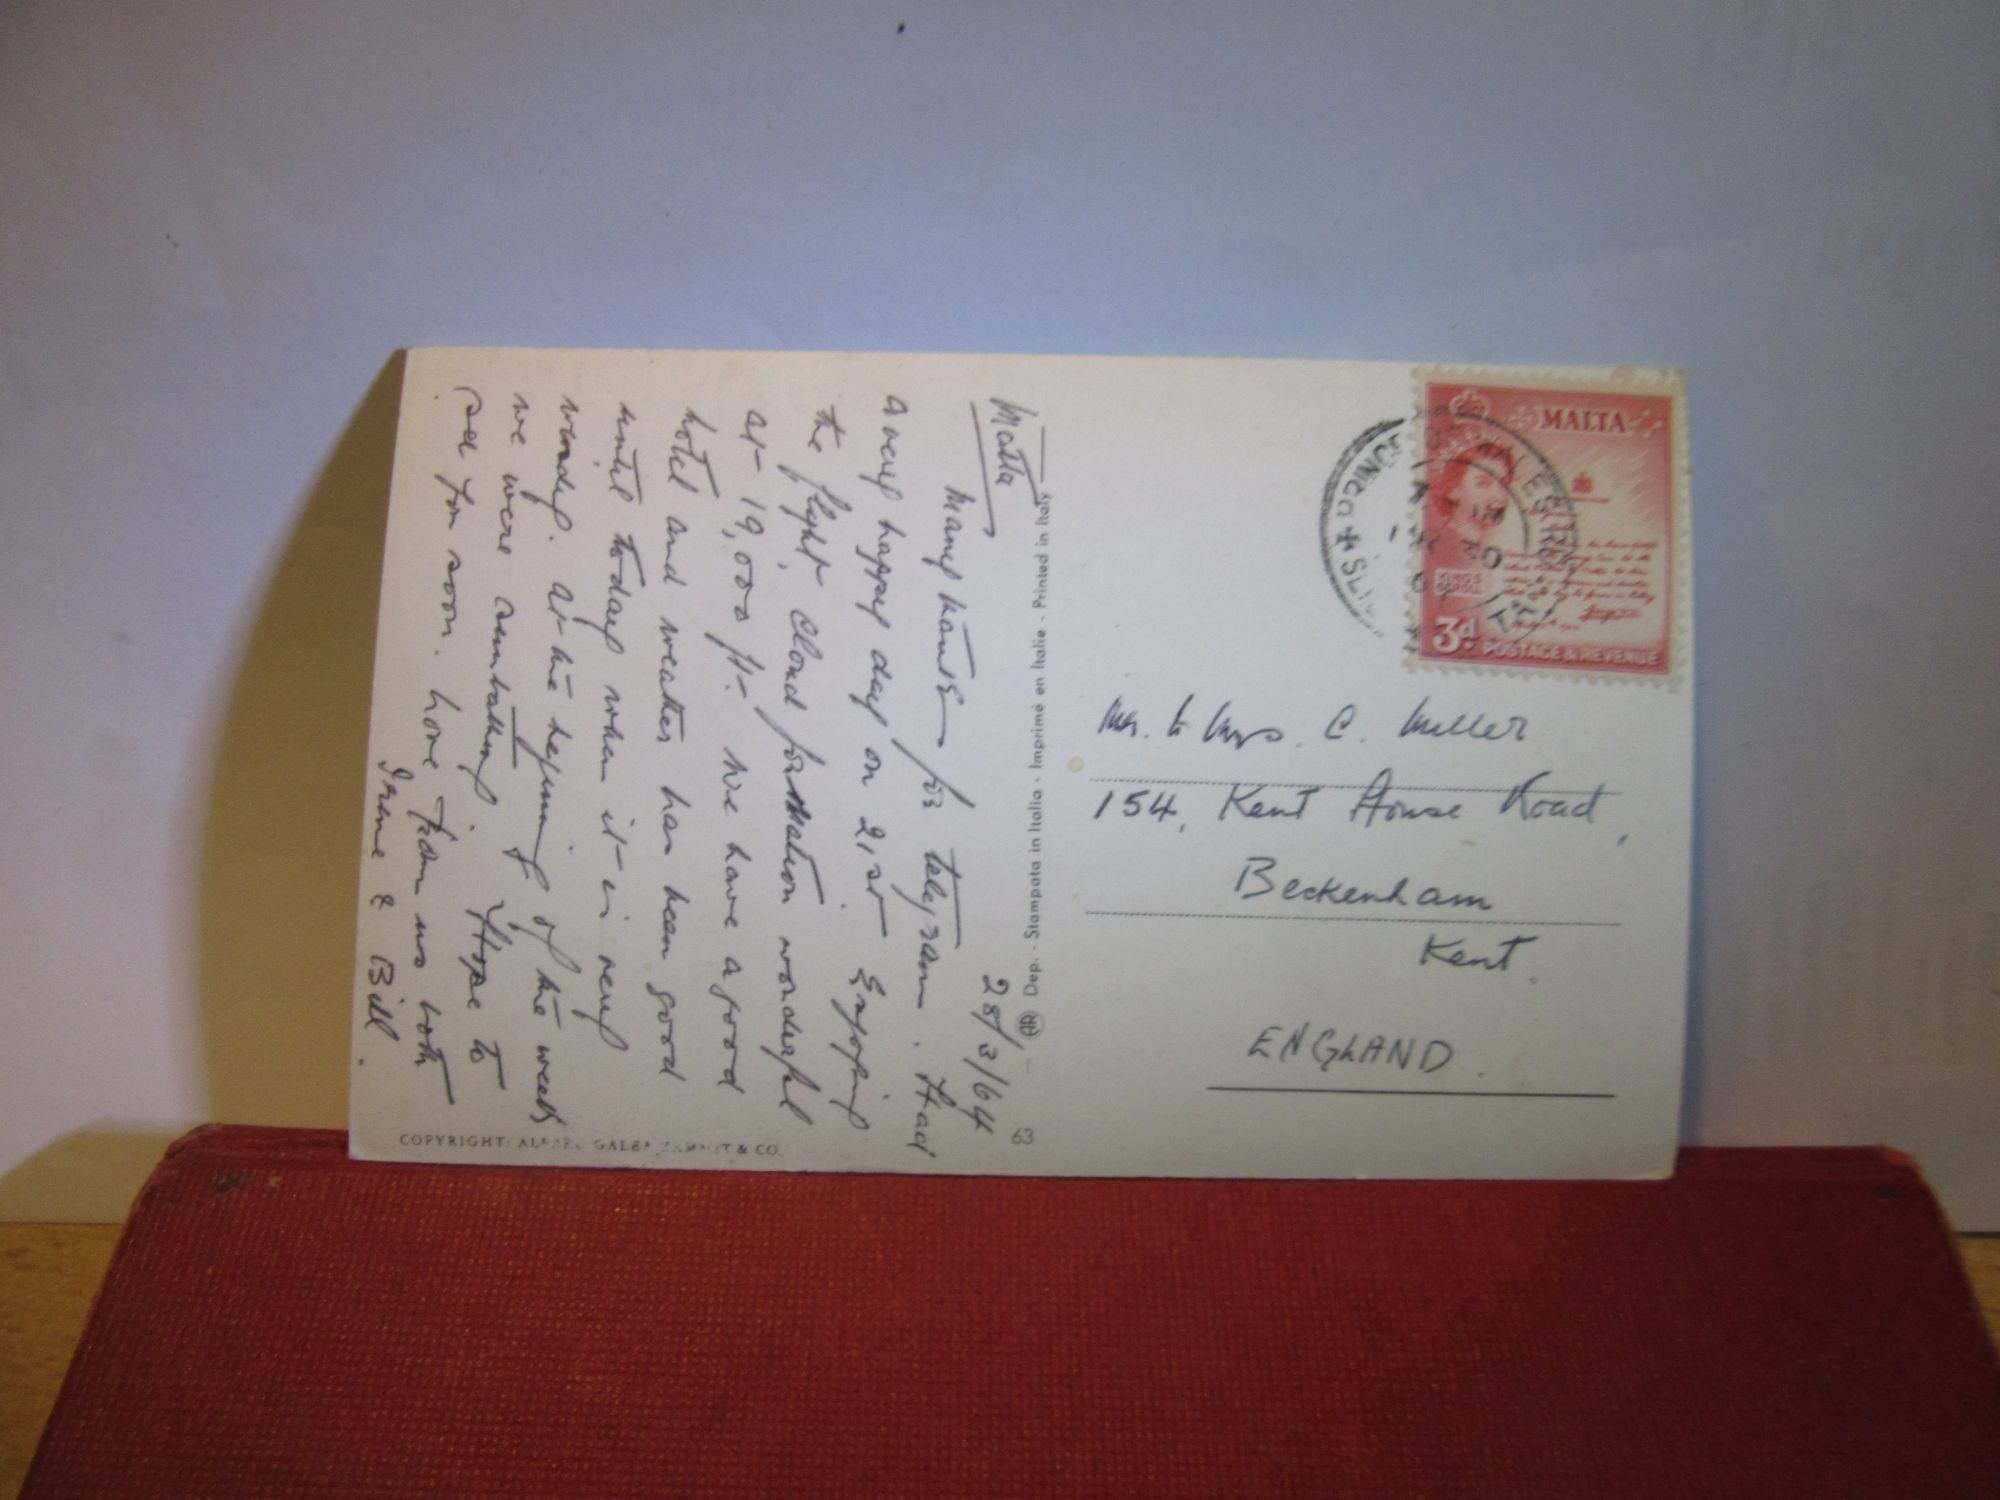 Malta
28/3/64
Many thanks for telegram. Had
a very happy day on 21st. Enjoying
the flight, cloud formation wonderful
at 19,000 ft. We have a good
hotel and weather has been good
until today when it is very
windy. At the beginning of the week
we were sunbathing. Hope to
see you soon. Love from us both
Irene & Bill.
COPYRIGHT: GALEA & CO.
Dep. - Stampato in Italia - Imprimé en Italie - Printed in Italy
63
MALTA
3d. POSTAGE & REVENUE
Mr. & Mrs. C. Miller
154, Kent House Road,
Beckenham
Kent.
ENGLAND.